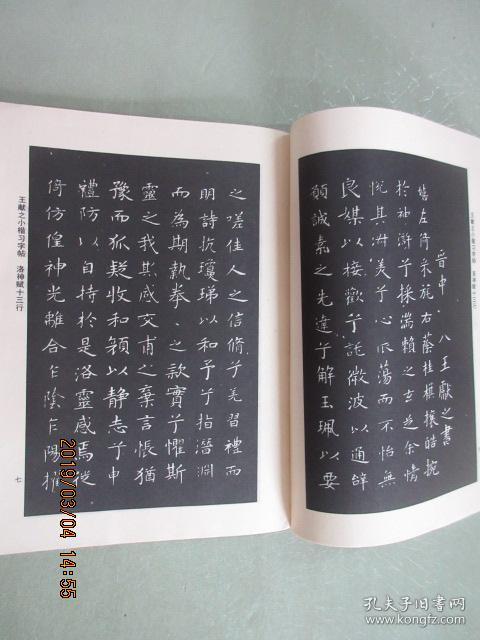 王献之小楷习字帖 洛神赋十三行
晉中 八王獻之書
嬉左倚采旄右蔭桂旗攘皓腕
於神滸兮採湍瀨之玄芝余情
悅其淑美兮心振蕩而不怡無
良媒以接歡兮託微波以通辭
願誠素之先達兮解玉珮以要
之嗟佳人之信脩兮羌習禮而
明詩抗瓊珶以和予兮指潛淵
而為期執拳〻之款實兮懼斯
靈之我欺感交甫之棄言悵猶
豫而狐疑收和顏以静志兮申
禮防以自持於是洛靈感焉徙
倚仿偟神光離合乍陰乍陽擢
王献之小楷习字帖 洛神赋十三行
七
2019/03/04 14:55
孔夫子旧书网
www.kongfz.com